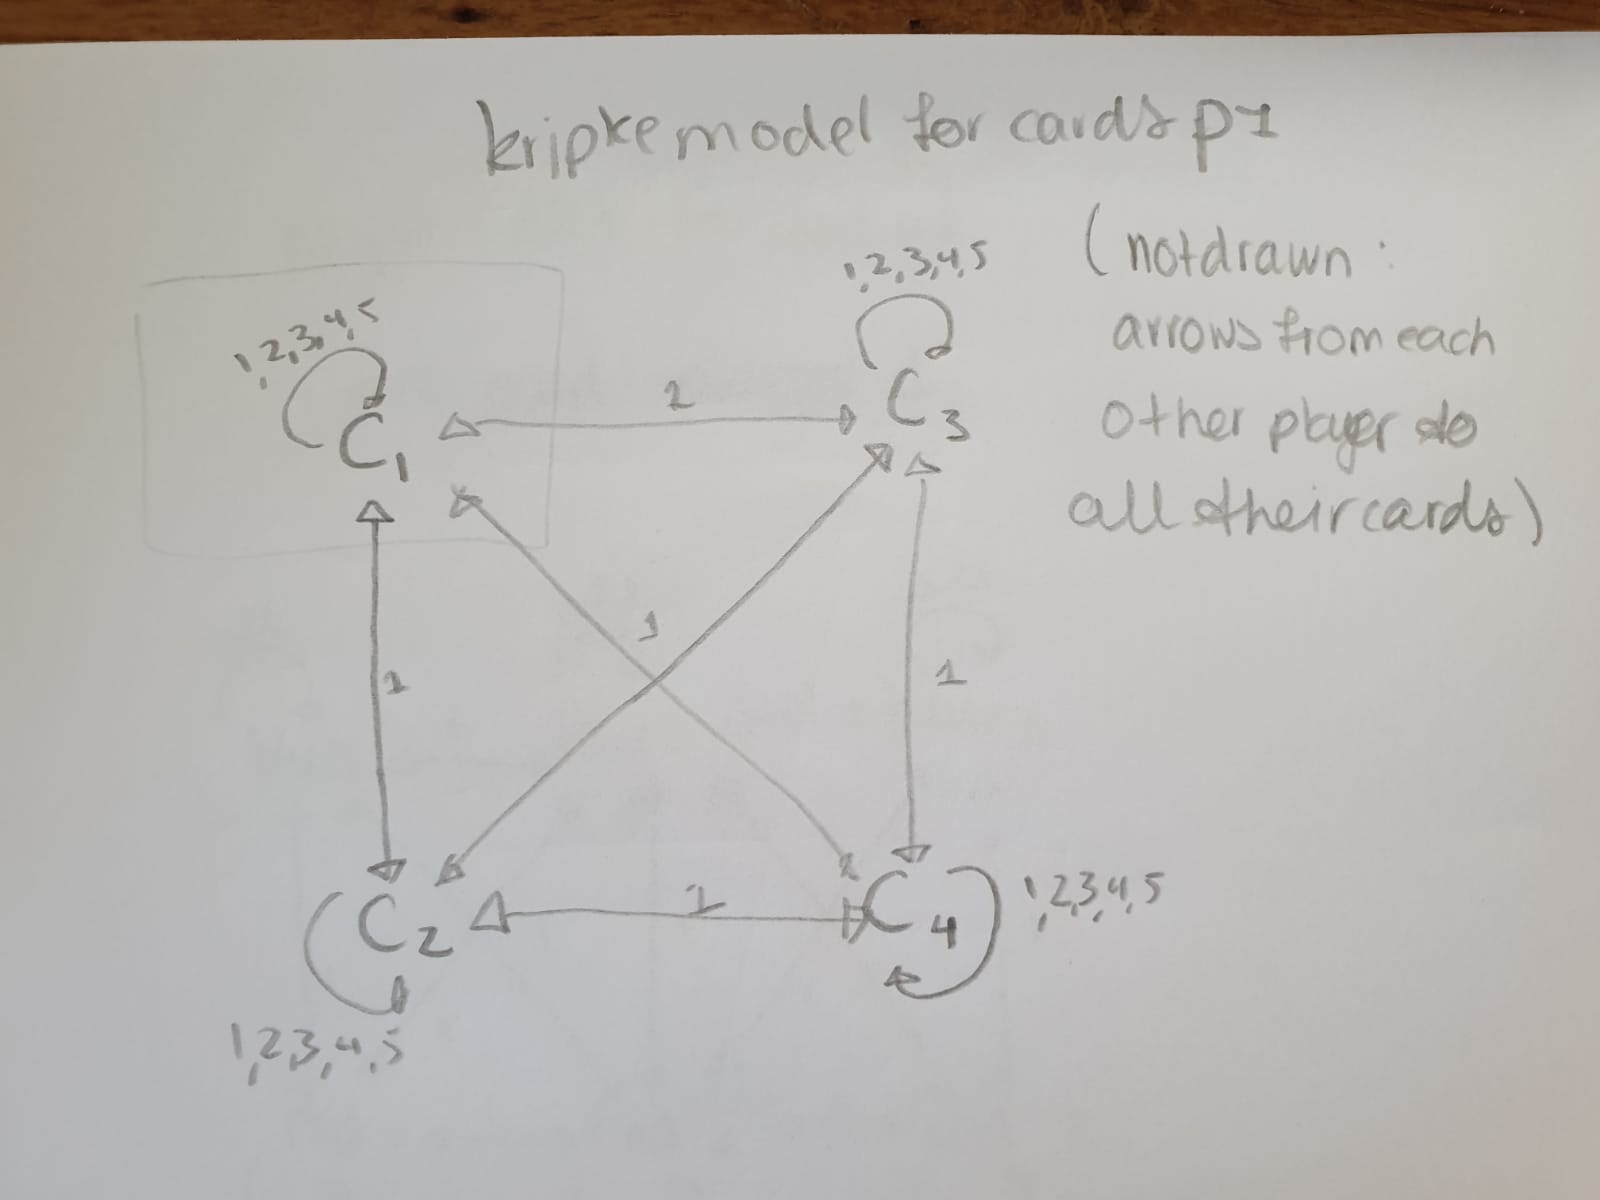 kripke model for cards p1
(not drawn:
arrows from each
other player to
all their cards)
1,2,3,4,5
1,2,3,4,5
C1
1
C3
1
1
1
C2
1
C4
1,2,3,4,5
1,2,3,4,5